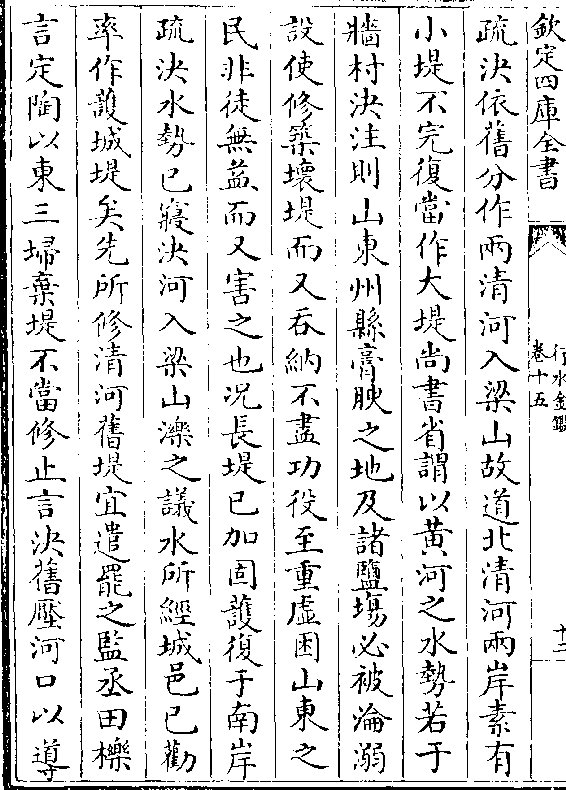 欽定四庫全書
行水金鑑
卷十五
十二
疏決依舊分作兩清河入梁山故道北清河兩岸素有
小堤不完復當作大堤尚書省謂以黃河之水勢若于
牆村決注則山東州縣膏腴之地及諸鹽場必被淪溺
設使修築壞堤而又吞納不盡功役至重虛困山東之
民非徒無益而又害之也况長堤已加固護復于南岸
疏決水勢已寢決河入梁山濼之議水所經城邑已勸
率作護城堤矣先所修清河舊堤宜遣罷之監丞田櫟
言定陶以東三埽棄堤不當修止言決舊壓河口以導